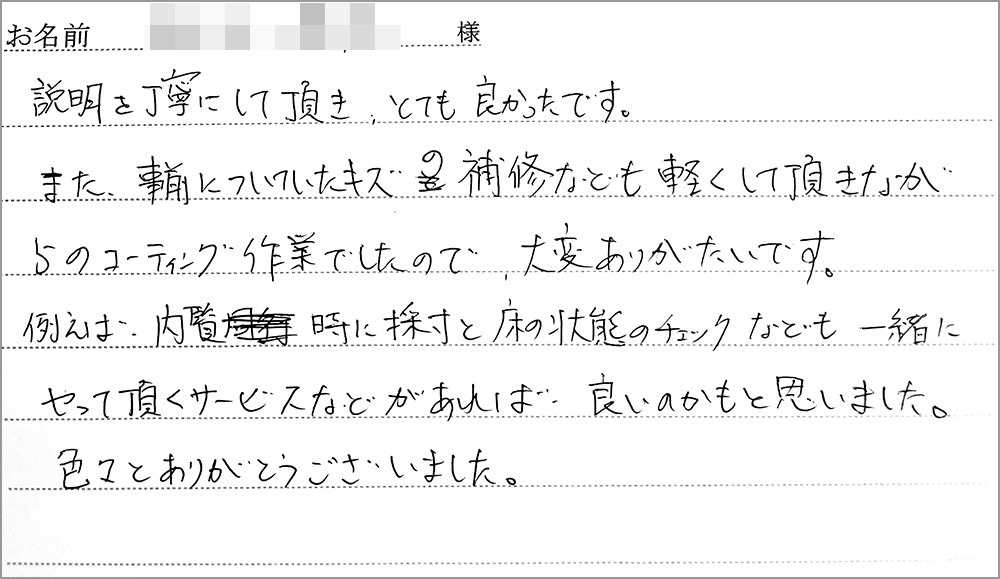 お名前 様
説明を丁寧にして頂き、とても良かったです。
また、事前についていたキズの補修なども軽くして頂きなが
らのコーティング作業でしたので、大変ありがたいです。
例えば、内覧時に採寸と床の状態のチェックなども一緒に
やって頂くサービスなどがあれば良いのかもと思いました。
色々とありがとうございました。